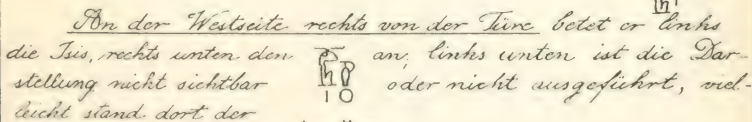 An der Westseite rechts von der Türe betet er links
die Isis, rechts unten den an, links unten ist die Dar-
stellung nicht sichtbar oder nicht ausgeführt, viel-
leicht stand dort der